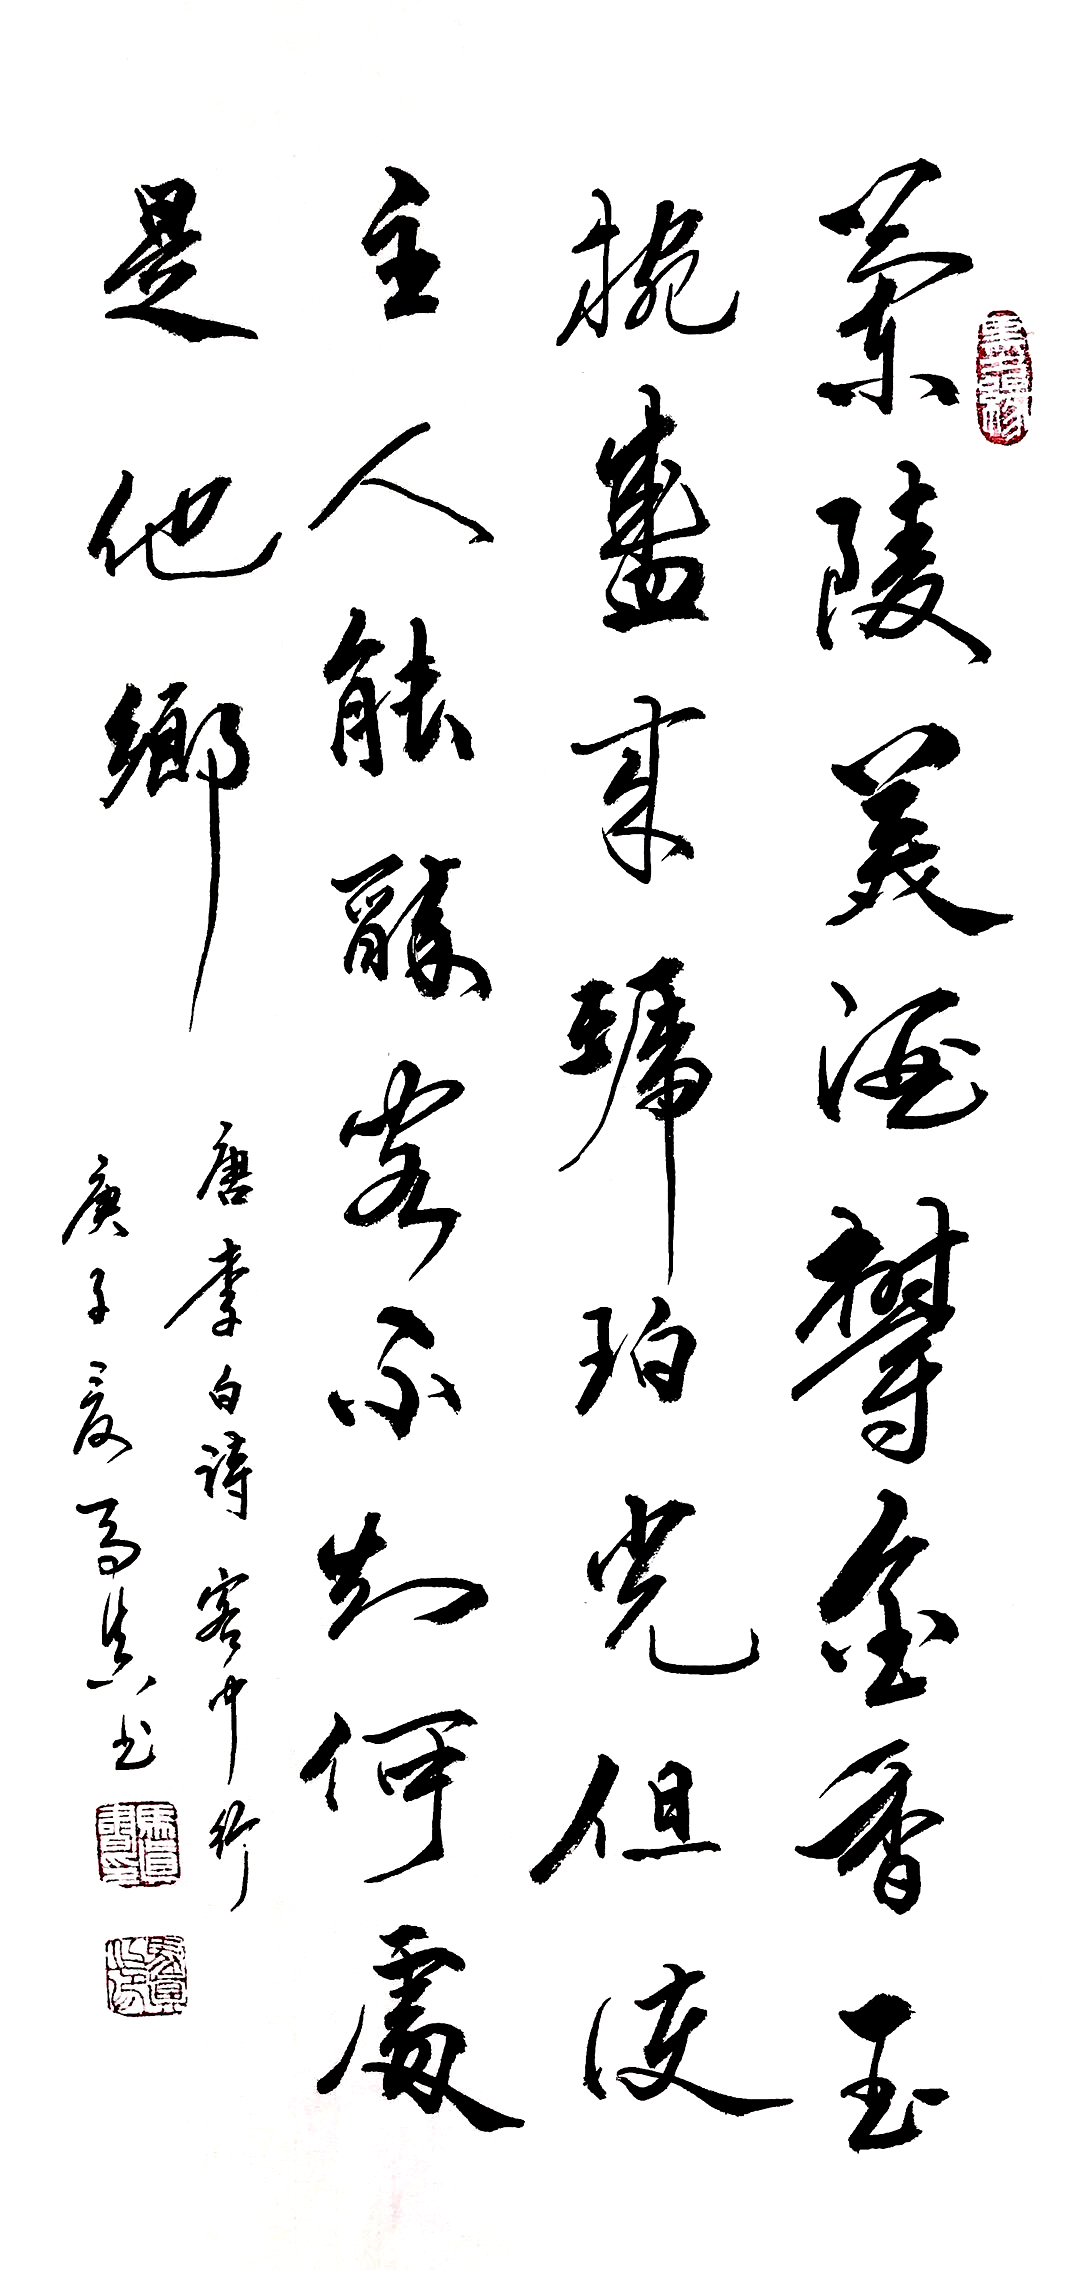 蘭陵美酒鬱金香玉
椀盛來琥珀光但使
主人能醉客不知何處
是他鄉
唐李白詩客中行
庚子夏馬真书